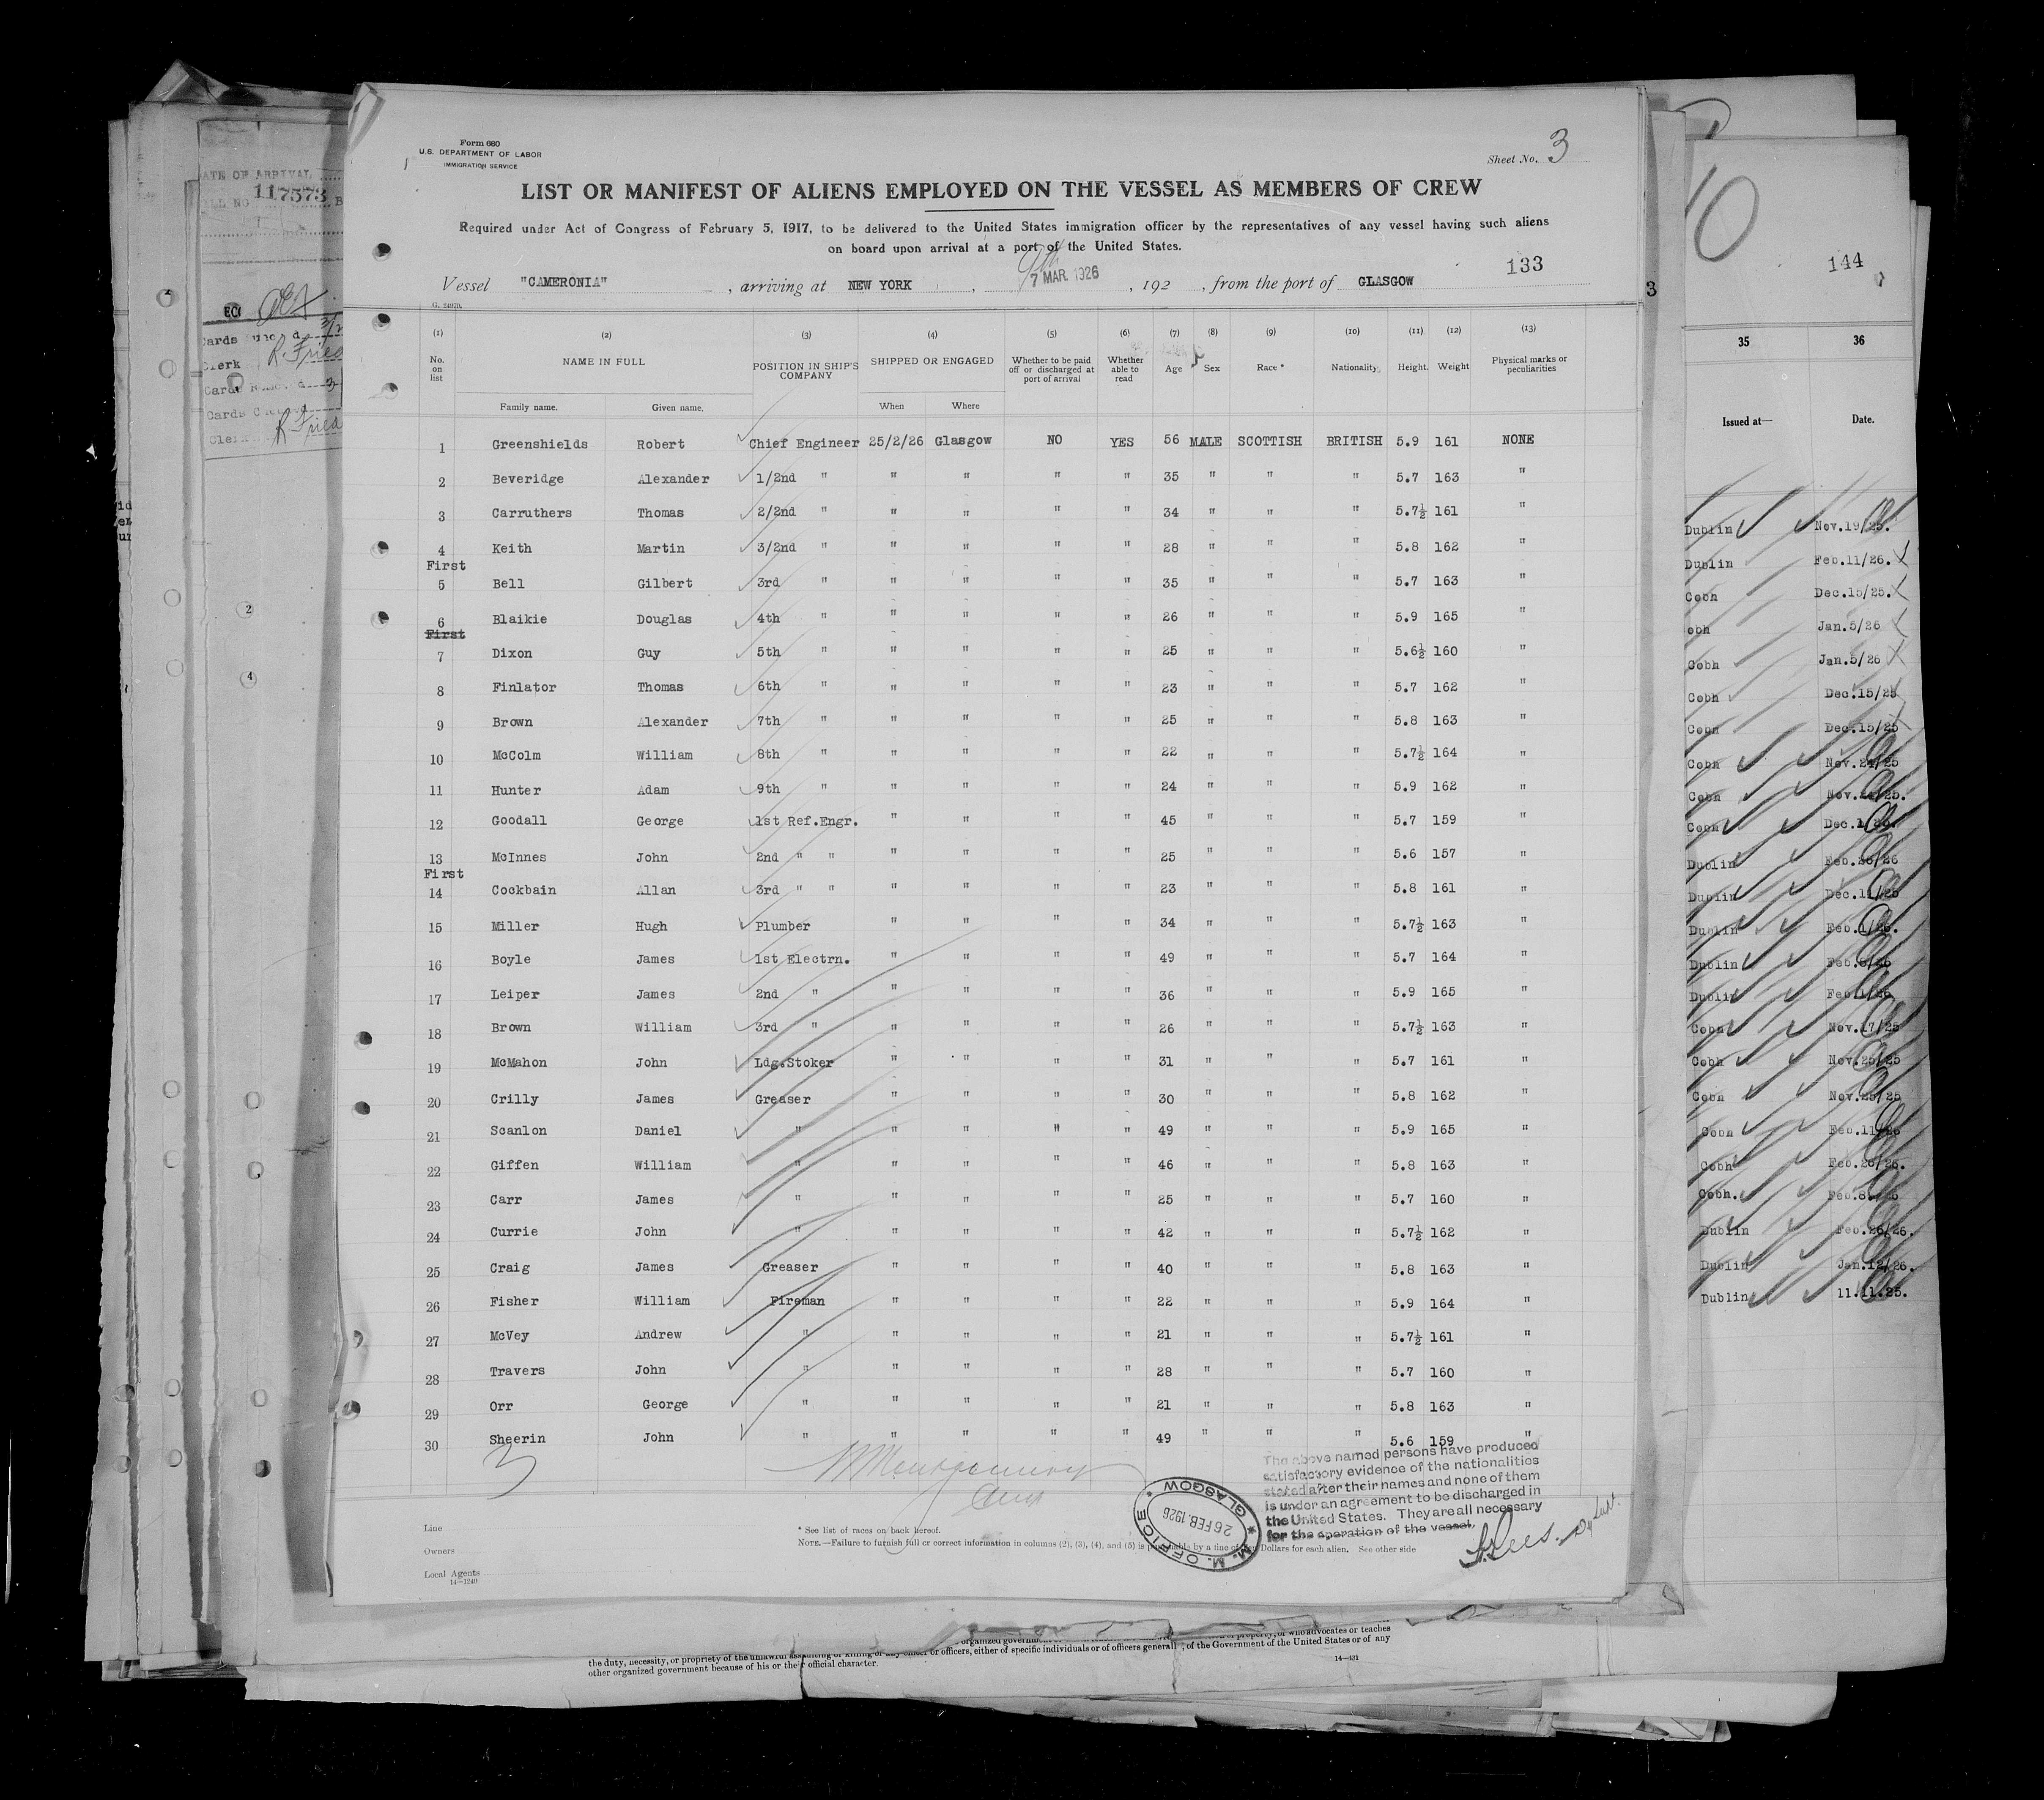 Form 680
U.S. DEPARTMENT OF LABOR
IMMIGRATION SERVICE
Sheet No. 3
LIST OR MANIFEST OF ALIENS EMPLOYED ON THE VESSEL AS MEMBERS OF CREW
Required under Act of Congress of February 5, 1917, to be delivered to the United States immigration officer by the representatives of any vessel having such aliens
on board upon arrival at a port of the United States.
133
Vessel "CAMERONIA", arriving at NEW YORK, 7 MAR. 1926, 192 , from the port of GLASGOW
(1) (2) (3) (4) (5) (6) (7) (8) (9) (10) (11) (12) (13)
No. on list NAME IN FULL POSITION IN SHIP'S COMPANY SHIPPED OR ENGAGED Whether to be paid off or discharged at port of arrival Whether able to read Age Sex Race * Nationality Height Weight Physical marks or peculiarities
Family name. Given name. When Where
1 Greenshields Robert Chief Engineer 25/2/26 Glasgow NO YES 56 MALE SCOTTISH BRITISH 5.9 161 NONE
2 Beveridge Alexander 1/2nd " " " " " 35 " " " 5.7 163 "
3 Carruthers Thomas 2/2nd " " " " " 34 " " " 5.7½ 161 "
4 Keith Martin 3/2nd " " " " " 28 " " " 5.8 162 "
First
5 Bell Gilbert 3rd " " " " " 35 " " " 5.7 163 "
6 Blaikie Douglas 4th " " " " " 26 " " " 5.9 165 "
First
7 Dixon Guy 5th " " " " " 25 " " " 5.6½ 160 "
8 Finlator Thomas 6th " " " " " 23 " " " 5.7 162 "
9 Brown Alexander 7th " " " " " 25 " " " 5.8 163 "
10 McColm William 8th " " " " " 22 " " " 5.7½ 164 "
11 Hunter Adam 9th " " " " " 24 " " " 5.9 162 "
12 Goodall George 1st Ref.Engr. " " " " 45 " " " 5.7 159 "
13 McInnes John 2nd " " " " " " 25 " " " 5.6 157 "
First
14 Cockbain Allan 3rd " " " " " " 23 " " " 5.8 161 "
15 Miller Hugh Plumber " " " " 34 " " " 5.7½ 163 "
16 Boyle James 1st Electrn. " " " " 49 " " " 5.7 164 "
17 Leiper James 2nd " " " " " 36 " " " 5.9 165 "
18 Brown William 3rd " " " " " 26 " " " 5.7½ 163 "
19 McMahon John Ldg.Stoker " " " " 31 " " " 5.7 161 "
20 Crilly James Greaser " " " " 30 " " " 5.8 162 "
21 Scanlon Daniel " " " " " 49 " " " 5.9 165 "
22 Giffen William " " " " " 46 " " " 5.8 163 "
23 Carr James " " " " " 25 " " " 5.7 160 "
24 Currie John " " " " " 42 " " " 5.7½ 162 "
25 Craig James Greaser " " " " 40 " " " 5.8 163 "
26 Fisher William Fireman " " " " 22 " " " 5.9 164 "
27 McVey Andrew " " " " " 21 " " " 5.7½ 161 "
28 Travers John " " " " " 28 " " " 5.7 160 "
29 Orr George " " " " " 21 " " " 5.8 163 "
30 Sheerin John " " " " " 49 " " " 5.6 159 "
3
The above named persons have produced
satisfactory evidence of the nationalities
stated after their names and none of them
is under an agreement to be discharged in
the United States. They are all necessary
for the operation of the vessel.
M. M. OFFICE * GLASGOW *
26 FEB. 1926
Line
Owners
Local Agents
14—1240
* See list of races on back hereof.
NOTE.—Failure to furnish full or correct information in columns (2), (3), (4), and (5) is punishable by a fine of Dollars for each alien. See other side
the duty, necessity, or propriety of the unlawful assaulting or killing of any officer or officers, either of specific individuals or of officers generally, of the Government of the United States or of any
other organized government because of his or their official character.
14—191
117573
10
144
3
35 36
Issued at— Date.
Dublin Nov.19/25.
Dublin Feb.11/26.
Cobh Dec.15/25.
obh Jan.5/26
Cobh Jan.5/26
Cobh Dec.15/25
Cobh Dec.15/25
Cobh Nov.24/25
Cobh
Cobh
Dublin
Dublin Dec.11/25
Dublin Feb.1/26.
Dublin
Dublin Feb.1/26
Cobh Nov.17/25
Cobh Nov.25/25
Cobh Nov.25/25
Cobh Feb.11/26
Cobh Feb.26/26.
Cobh.
Dublin Feb.26/26.
Dublin Jan.12/26.
Dublin 11.11.25.